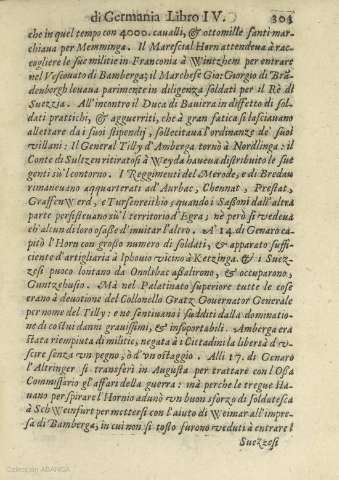 di Germania Libro IV.
303
che in quel tempo con 4000. caualli, & ottomille fanti mar-
chiaua per Memminga. Il Marescial Horn attendeua à rac-
cogliere le sue militie in Franconia à Wintzhem per entrare
nel Vescouato di Bamberga; il Marchese Gio: Giorgio di Brã-
denborgh leuaua parimente in diligenza soldati per il Rè di
Suezzia. All'incontro il Duca di Bauiera in diffetto di sol-
dati prattichi, & agguerriti, che à gran fatica si lasciauano
allettare da i suoi stipendij, sollecitaua l'ordinanze de' suoi
villani: Il General Tilly d'Amberga tornò à Nordlinga: il
Conte di Sultzen ritiratosi à Weyda haueua distribuito le sue
genti sù'l contorno. I Reggimenti del Merode, e di Bredau
rimaneuano acquarterati ad'Aurbac, Chennat, Prestat,
GraffenWerd, e Turfenreithio; quando i Sassoni dall'altra
parte persisteuano sù'l territorio d'Egra; nè però si vedeua
ch'alcun di loro osasse d'inuitar l'altro. A 14. di Genaro ca-
pitò l'Horn con grosso numero di soldati, & apparato suffi-
ciente d'artigliaria à Iphouio vicino à Ketzinga. & i Suez-
zesi puoco lontano da Onoltzbac assalirono, & occuparono,
Guntzghusio. Mà nel Palatinato superiore tutte le cose
erano à deuotione del Collonello Gratz Gouernator Generale
per nome del Tilly: e ne sentiuano i sudditi dalla dominatio-
ne di costui danni grauissimi, & insoportabili. Amberga era
stata riempiuta di militie, negata à i Cittadini la libertà d'v-
scire senza vn pegno, ò d'vn ostaggio. Alli 17. di Genaro
l'Altringer si transferì in Augusta per trattare con l'Ossa
Commissario gl'affari della guerra: mà perche le tregue sta-
uano per spirare l'Hornio adunò vn buon sforzo di soldatesca
à SchWeinfurt per mettersi con l'aiuto di Weimar all'impre-
sa di Bamberga; in cui non sì tosto furono veduti à entrare i
Suezzesi
Colección ABANCA